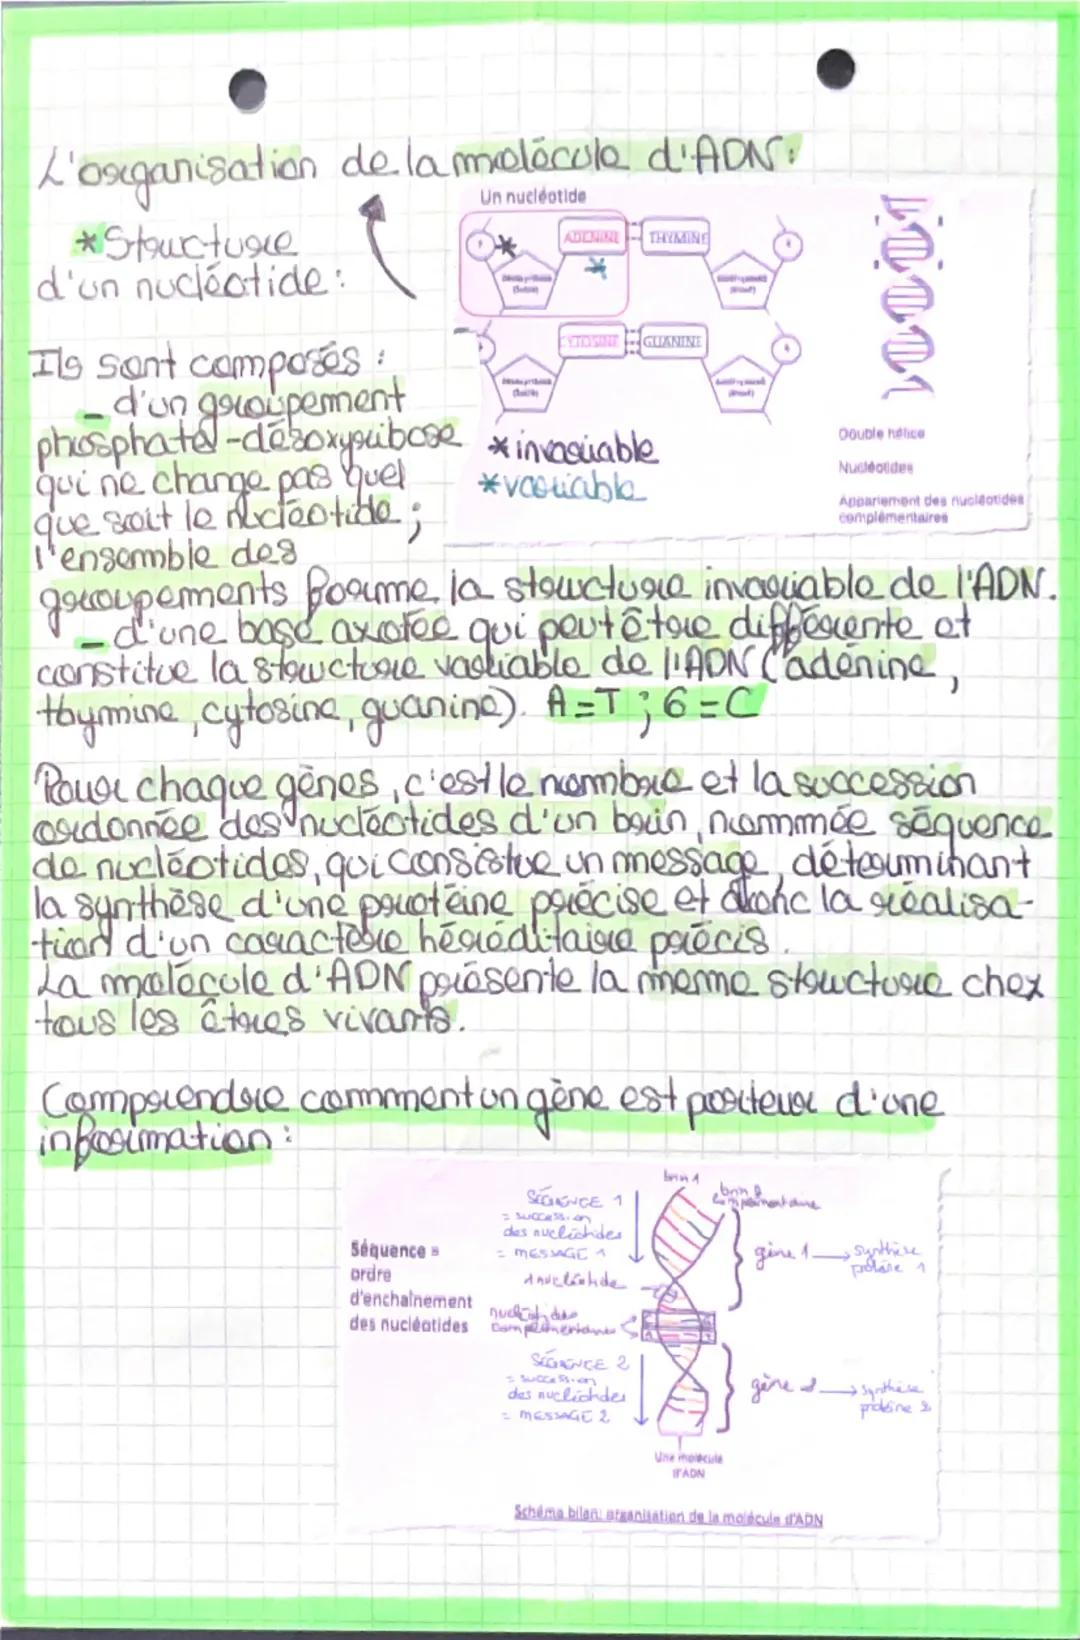 L'organisation de la molécule d'ADN :
* Structure
d'un nucléotide :
Un nucléotide
ADENINE
THYMINE
CYTOSINE
GUANINE
* invariable
* variable
Double hélice
Nucléotides
Appariement des nucléotides
complémentaires
Ils sont composés :
- d'un groupement
phosphate-désoxyribose
qui ne change pas quel
que soit le nucléotide ;
l'ensemble des
groupements forme la structure invariable de l'ADN.
- d'une base axotée qui peut être différente et
constitue la structure variable de l'ADN (adénine,
thymine, cytosine, guanine). A=T ; G=C
Pour chaque gènes, c'est le nombre et la succession
ordonnée des nucléotides d'un brin, nommée séquence
de nucléotides, qui consistue un message, déterminant
la synthèse d'une protéine précise et donc la réalisa-
tion d'un caractère héréditaire précis.
La molécule d'ADN présente la meme structure chez
tous les êtres vivants.
Comprendre comment un gène est porteur d'une
information :
Séquence =
ordre
d'enchaînement
des nucléotides
SÉQUENCE 1
= succession
des nucléotides
= MESSAGE 1
1 nucléotide
nucléotides
complémentaires
SÉQUENCE 2
= succession
des nucléotides
= MESSAGE 2
brin 1
brin 2
complémentaire
gène 1 → synthèse
protéine 1
gène 2 → synthèse
protéine 2
Une molécule
d'ADN
Schéma bilan: organisation de la molécule d'ADN